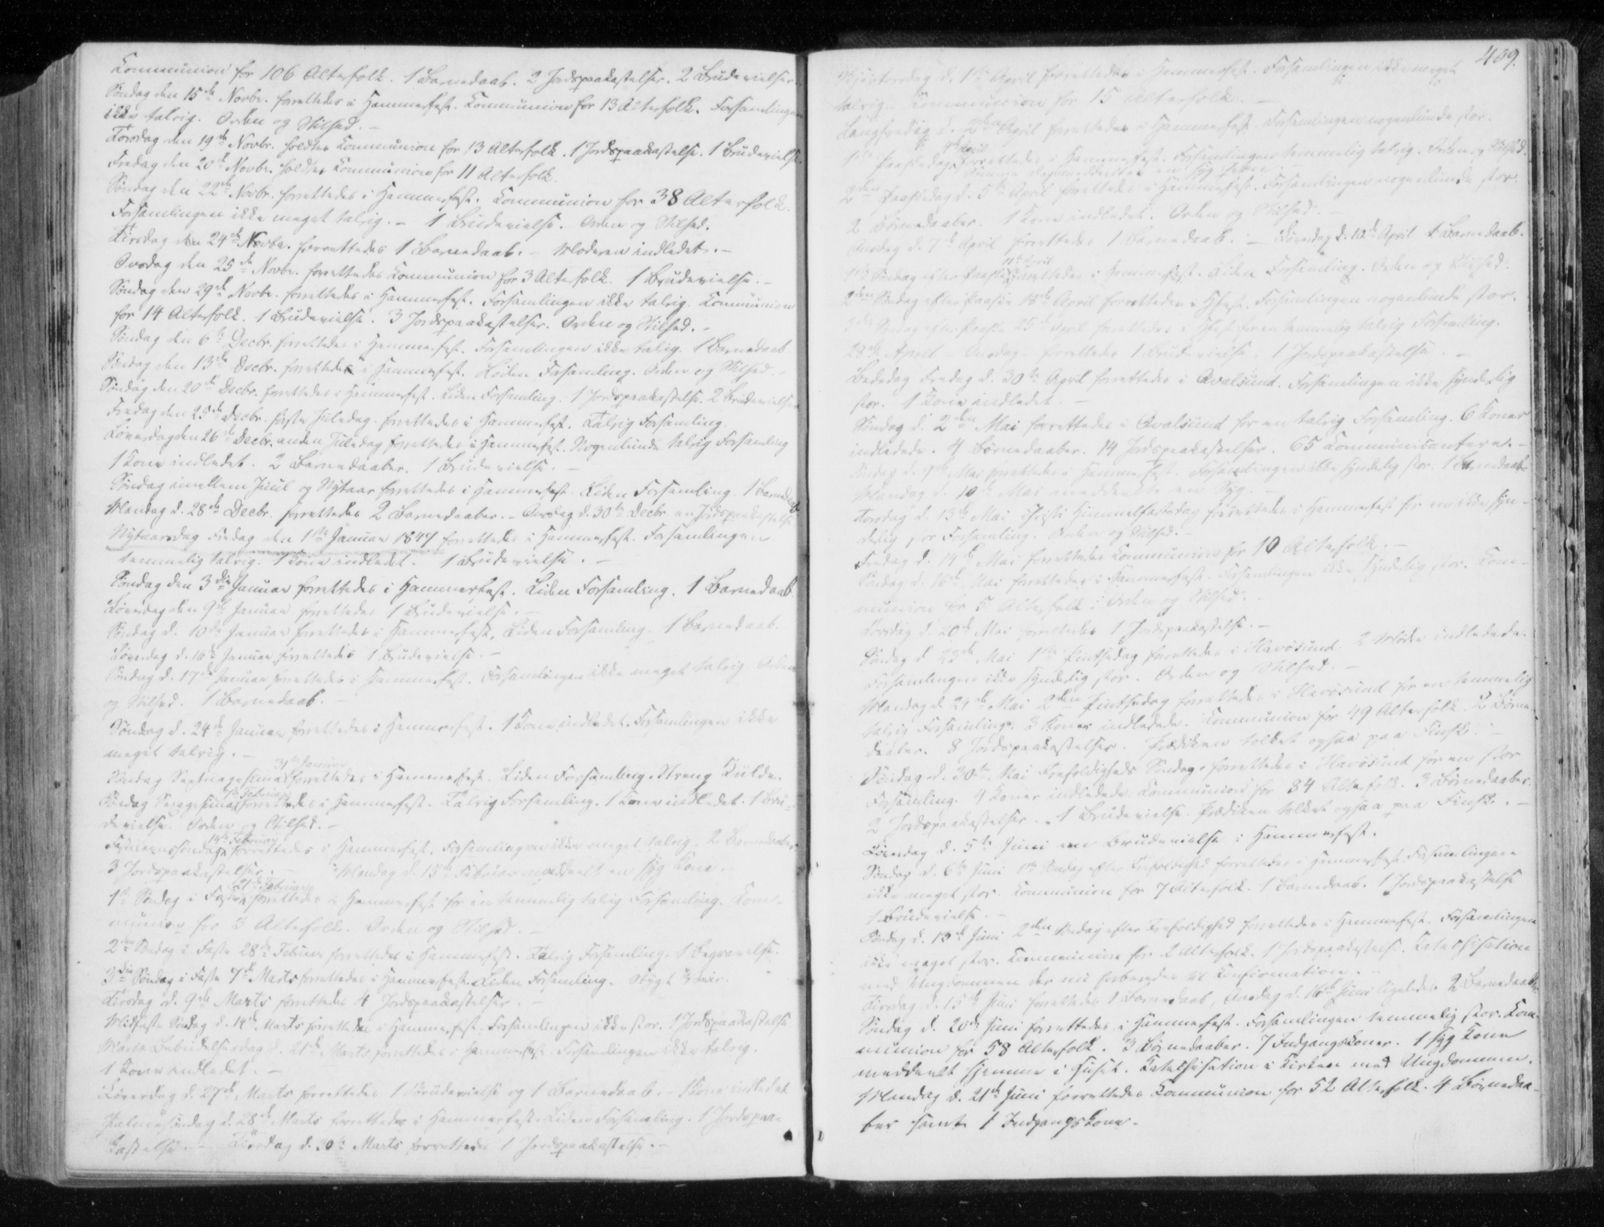 Communion for 106 Altersfolk. 1 Barnedaab. 2 Jordspaakastelser. 2 Brudevielser.
Søndag den 15de Novbr. forrettedes i Hammerfest. Communion for 13 Altersfolk. Forsamlingen
ikke talrig. Orden og Stilhed. –
Torsdag den 19de Novbr. holdtes Communion for 13 Altersfolk. 1 Jordspaakastelse. 1 Brudevielse
Fredag den 20de Novbr. holdtes Communion for 11 Altersfolk.
Søndag den 22de Novbr. forrettedes i Hammerfest. Communion for 38 Altersfolk.
Forsamlingen ikke meget talrig. – 1 Brudevielse. Orden og Stilhed.
Tirsdag den 24de Novbr. forrettedes 1 Barnedaab. – Moderen indledet. –
Onsdag den 25de Novbr. forrettedes Communion for 3 Altersfolk. 1 Brudevielse. –
Søndag den 29de Novbr. forrettedes i Hammerfest. Forsamlingen ikke talrig. Communion
for 14 Altersfolk. 1 Brudevielse. 3 Jordspaakastelser. Orden og Stilhed. –
Søndag den 6te Decbr. forrettedes i Hammerfest. Forsamlingen ikke talrig. 1 Barnedaab
Søndag den 13de Decbr. forrettedes i Hammerfest. Liden Forsamling. Orden og Stilhed. –
Søndag den 20de Decbr. forrettedes i Hammerfest. Liden Forsamling. 1 Jordspaakastelse. 2 Brudevielser
Fredag den 25de Decbr. første Juledag forrettedes i Hammerfest. Talrig Forsamling.
Løverdag den 26de Decbr. anden Juledag forrettedes i Hammerfest. Nogenlunde talrig Forsamling
1 Kone indledet. 2 Barnedaaber. 1 Brudevielse. –
Søndag imellem Juul og Nytaar forrettedes i Hammerfest. Liden Forsamling. 1 Barnedaab
Mandag d. 28de Decbr. forrettedes 2 Barnedaaber. – Onsdag d. 30te Decbr. en Jordspaakastelse
Nytaarsdag Fredag den 1ste Januar 1847 forrettedes i Hammerfest. Forsamlingen
temmelig talrig. 1 Kone indledet. 1 Brudevielse. –
Søndag den 3die Januar forrettedes i Hammerfest. Liden Forsamling. 1 Barnedaab
Løverdag den 9de Januar forrettedes 1 Brudevielse. –
Søndag d. 10de Januar forrettedes i Hammerfest. Liden Forsamling. 1 Barnedaab.
Løverdag d. 16de Januar forrettedes 1 Brudevielse. –
Søndag d. 17de Januar forrettedes i Hammerfest. Forsamlingen ikke meget talrig. Orden
og Stilhed. 1 Barnedaab. –
Søndag d. 24de Januar forrettedes i Hammerfest. 1 Kone indledet. Forsamlingen ikke
meget talrig. –
Søndag Septuagesima 31te Januar forrettedes i Hammerfest. Liden Forsamling. Streng Kulde.
Søndag Sexagesima 7de Februar forrettedes i Hammerfest. Talrig Forsamling. 1 Kone indledet. 1 Bru-
devielse. Orden og Stilhed. –
Fastelavnssøndag 14de Februar forrettedes i Hammerfest. Forsamlingen ikke meget talrig. 2 Barnedaaber
3 Jordspaakastelser. – Mandag d. 15de Februar meddeelt en syg Kone. –
1ste Søndag i Faste 21de Februar forrettedes i Hammerfest for en temmelig talrig Forsamling. Com-
munion for 3 Altersfolk. Orden og Stilhed. –
2den Søndag i Faste 28de Februar forrettedes i Hammerfest. Talrig Forsamling. 1 Begravelse.
3die Søndag i Faste 7de Marts forrettedes i Hammerfest. Liden Forsamling. Stygt Veir.
Tirsdag d. 9de Marts forrettedes 4 Jordspaakastelser. –
Midfaste Søndag d. 14de Marts forrettedes i Hammerfest. Forsamlingen ikke stor. 1 Jordspaakastelse
Mariæ Bebudelsesdag d. 21de Marts forrettedes i Hammerfest. Forsamlingen ikke talrig.
1 Kone indledet. –
Løverdag d. 27de Marts forrettedes 1 Brudevielse og 1 Barnedaab. – 1 Kone indledet
Palmesøndag d. 28de Marts forrettedes i Hammerfest. Liden Forsamling. 1 Jordspaa-
kastelse. – Tirsdag d. 30te Marts forrettedes 1 Jordspaakastelse. –
409.
Skjærtorsdag d. 1ste April forrettedes i Hammerfest. Forsamlingen ikke meget
talrig. Communion for 15 Altersfolk. –
Langfredag d. 2den April forrettedes i Hammerfest. Forsamlingen nogenlunde stor.
1ste Paaskedag 4de April forrettedes i Hammerfest. Forsamlingen temmelig talrig. Orden og Stilhed.
2den Paaskedag d. 5te April forrettedes i Hammerfest. Forsamlingen nogenlunde stor.
2 Børnedaaber. 1 Kone indledet. Orden og Stilhed. –
Onsdag d. 7de April forrettedes 1 Barnedaab. – Mandag d. 12te April 1 Barnedaab.
1ste Søndag efter Paaske 11te April forrettedes i Hammerfest. Liden Forsamling. Orden og Stilhed.
2den Søndag efter Paaske 18de April forrettedes i Hfest. Forsamlingen nogenlunde stor.
3die Søndag efter Paaske 25de April forrettedes i Hfest for en temmelig talrig Forsamling.
28de April – Onsdag – forrettedes 1 Brudevielse. 1 Jordspaakastelse. –
Bededag Fredag d. 30te April forrettedes i Qvalsund. Forsamlingen ikke synderlig
stor. 1 Kone indledet. –
Søndag d. 2den Mai forrettedes i Qvalsund for en talrig Forsamling. 6 Koner
indledede. 4 Børnedaaber. 14 Jordspaakastelser. 65 Communicantere. –
Søndag d. 9de Mai forrettedes i Hammerfest. Forsamlingen ikke synderlig stor. 1 Barnedaab
Mandag d. 10de Mai meddeeltes en Syg. –
Torsdag d. 13de Mai Christi Himmelfartsdag forrettedes i Hammerfest for en ikke syn-
derlig stor Forsamling. Orden og Stilhed. –
Fredag d. 14de Mai forrettedes Communion for 10 Altersfolk. –
Søndag d. 16de Mai forrettedes i Hammerfest. Forsamlingen ikke synderlig stor. Com-
munion for 5 Altersfolk. Orden og Stilhed. –
Torsdag d. 20de Mai forrettedes 1 Jordspaakastelse. –
Søndag d. 23de Mai 1ste Pintsedag forrettedes i Havøsund. 2 Mødre indledede.
Forsamlingen ikke synderlig stor. Orden og Stilhed. –
Mandag d. 24de Mai 2den Pintsedag forrettedes i Havøsund for en temmelig
talrig Forsamling. 3 Koner indledede. Communion for 49 Altersfolk. 2 Børne-
daaber. 8 Jordspaakastelser. Prædiken tolket ogsaa paa Finsk. –
Søndag d. 30te Mai Trefoldigheds Søndag forrettedes i Havøsund for en stor
Forsamling. 4 Koner indledede. Communion for 84 Altersfolk. 3 Børnedaaber.
2 Jordspaakastelser. 1 Brudevielse. Prædiken tolket ogsaa paa Finsk. –
Løverdag d. 5te Juni en Brudevielse i Hammerfest.
Søndag d. 6te Juni 1ste Søndag efter Trefoldighed forrettedes i Hammerfest. Forsamlingen
ikke meget stor. Communion for 7 Altersfolk. 1 Barnedaab. 1 Jordspaakastelse
1 Brudevielse. –
Søndag d. 13de Juni 2den Søndag efter Trefoldighed forrettedes i Hammerfest. Forsamlingen
ikke meget stor. Communion for 2 Altersfolk. 1 Jordspaakastelse. Catechisation
med Ungdommen der nu forberedes til Confirmation. –
Tirsdag d. 15de Juni forrettedes 1 Barnedaab, Onsdag d. 16de Juni ligeledes 2 Barnedaaber
Søndag d. 20de Juni forrettedes i Hammerfest. Forsamlingen temmelig stor. Com-
munion for 58 Altersfolk. 3 Børnedaaber. 7 Indgangskoner. 1 syg Kone
meddeelt hjemme i Huset. Catechisation i Kirken med Ungdommen.
Mandag d. 21de Juni forrettedes Communion for 52 Altersfolk. 4 Børnedaa-
ber samt 1 Indgangskone. –